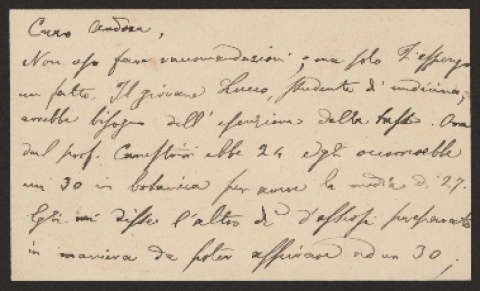 Caro Andrea,
Non oso fare raccomandazioni; ma solo T'espongo
un fatto. Il giovane Lucco, studente di medicina,
avrebbe bisogno dell'esenzione dalle tasse. Ora
dal prof. Canestrini ebbe 24 e gli occorrerebbe
un 30 in botanica per avere la media di 27.
Egli mi disse l'altro dì d'essersi preparato
in maniera da poter aspirare ad un 30;